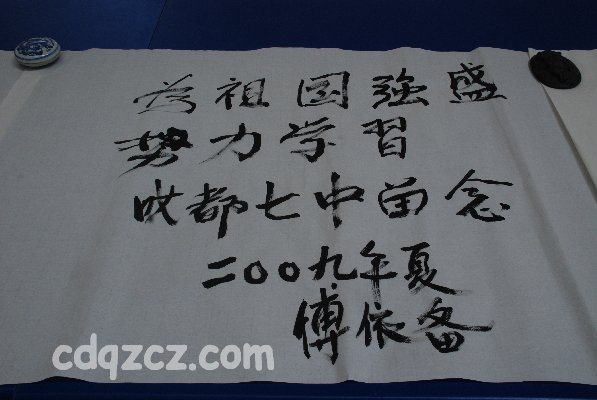 为祖国強盛
努力学習
成都七中留念
二〇〇九年夏
傅依备
cdqzcz.com